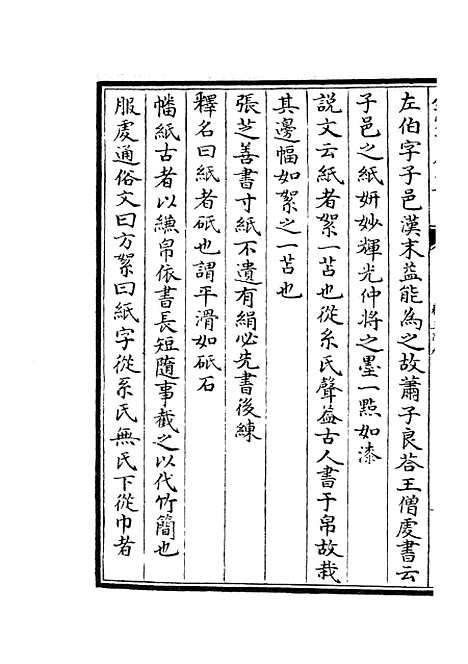 左伯字子邑漢末益能為之故蕭子良荅王僧虔書云
子邑之紙妍妙輝光仲將之墨一㸃如漆
説文云紙者絮一苫也從糸氏聲葢古人書于帛故裁
其邊幅如絮之一苫也
張芝善書寸紙不遺有絹必先書後練
釋名曰紙者砥也謂平滑如砥石
幡紙古者以縑帛依書長短隨事截之以代竹簡也
服虔通俗文曰方絮曰紙字從糸氏無氏下從巾者